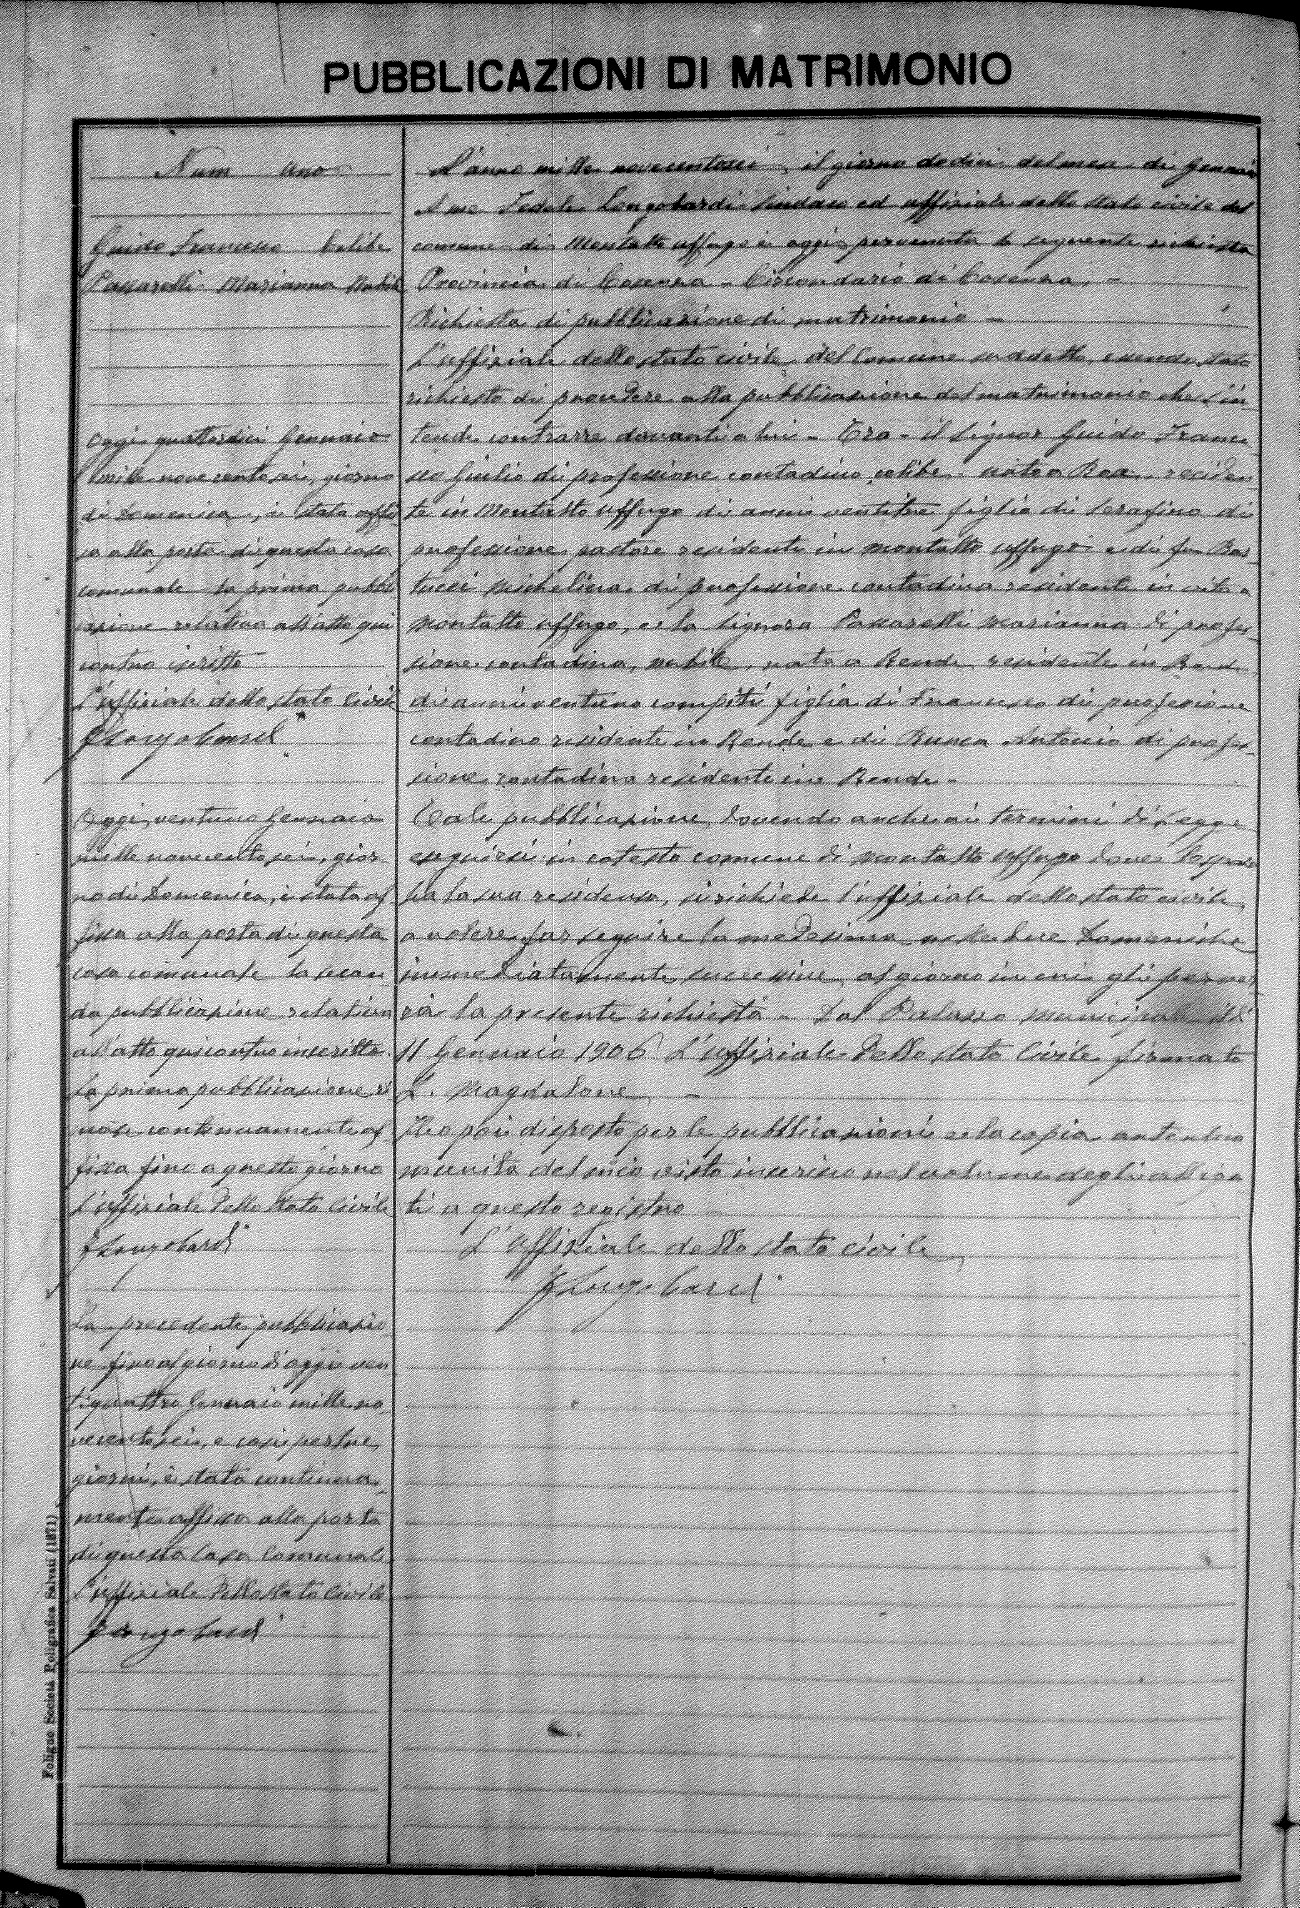 PUBBLICAZIONI DI MATRIMONIO
Num uno
Guido Francesco Celibe
Passarelli Marianna Nubile
Oggi quattordici Gennaio
mille novecentosei, giorno
di Domenica, è stata affis
sa alla porta di questa casa
comunale la prima pubbli
cazione relativa all'atto qui
contro iscritto
L'uffiziale dello stato civile
F Longobardi
Oggi ventuno Gennaio
mille novecentosei, gior
no di Domenica, è stata af
fissa alla porta di questa
casa comunale la secon
da pubblicazione relativa
all'atto qui contro inscritto.
La prima pubblicazione ri
mase continuamente af
fissa fino a questo giorno
L'uffiziale dello stato civile
F Longobardi
La precedente pubblicazio
ne fino al giorno d'oggi ven
tiquattro Gennaio mille no
vecentosei, e così per tre
giorni, è stata continua
mente affissa alla porta
di questa Casa Comunale
L'uffiziale dello stato Civile
F Longobardi
L'anno mille novecentosei, il giorno dodici del mese di Gennaio
A me Fedele Longobardi Sindaco ed uffiziale dello stato civile del
comune di Montalto Uffugo è oggi pervenuta la seguente richiesta
Provincia di Cosenza - Circondario di Cosenza, -
Richiesta di pubblicazione di matrimonio -
L'uffiziale dello stato civile del Comune suddetto, essendo stato
richiesto di procedere alla pubblicazione del matrimonio che s'in
tende contrarre davanti a lui - Tra - il Signor Guido France
sco Giulio di professione contadino celibe nato a residen
te in Montalto Uffugo di anni ventitre figlio di Serafino di
professione pastore residente in Montalto Uffugo e di fu
Michelina di professione contadina residente in vita a
Montalto Uffugo, e la Signora Passarelli Marianna di profes
sione contadina, nubile, nata a Rende residente in Rende
di anni ventuno compiti figlia di Francesco di professione
contadino residente in Rende e di Antonio di profes
sione contadina residente in Rende -
Tale pubblicazione dovendo anche ai termini di Legge
eseguirsi in cotesto comune di Montalto Uffugo dove lo sposo
ha la sua residenza, si richiede l'uffiziale dello stato civile
a volere far seguire la medesima nelle due Domeniche
immediatamente successive al giorno in cui gli perver
rà la presente richiesta - Dal Palazzo municipale lì
11 Gennaio 1906 L'uffiziale dello stato Civile firmato
L. Magdalone -
Ho poi disposto per le pubblicazioni e la copia autentica
munita del mio visto inserisco nel volume degli allega
ti a questo registro
L'Uffiziale dello stato civile
F Longobardi
Foligno Società Poligrafica Salvati (1871)